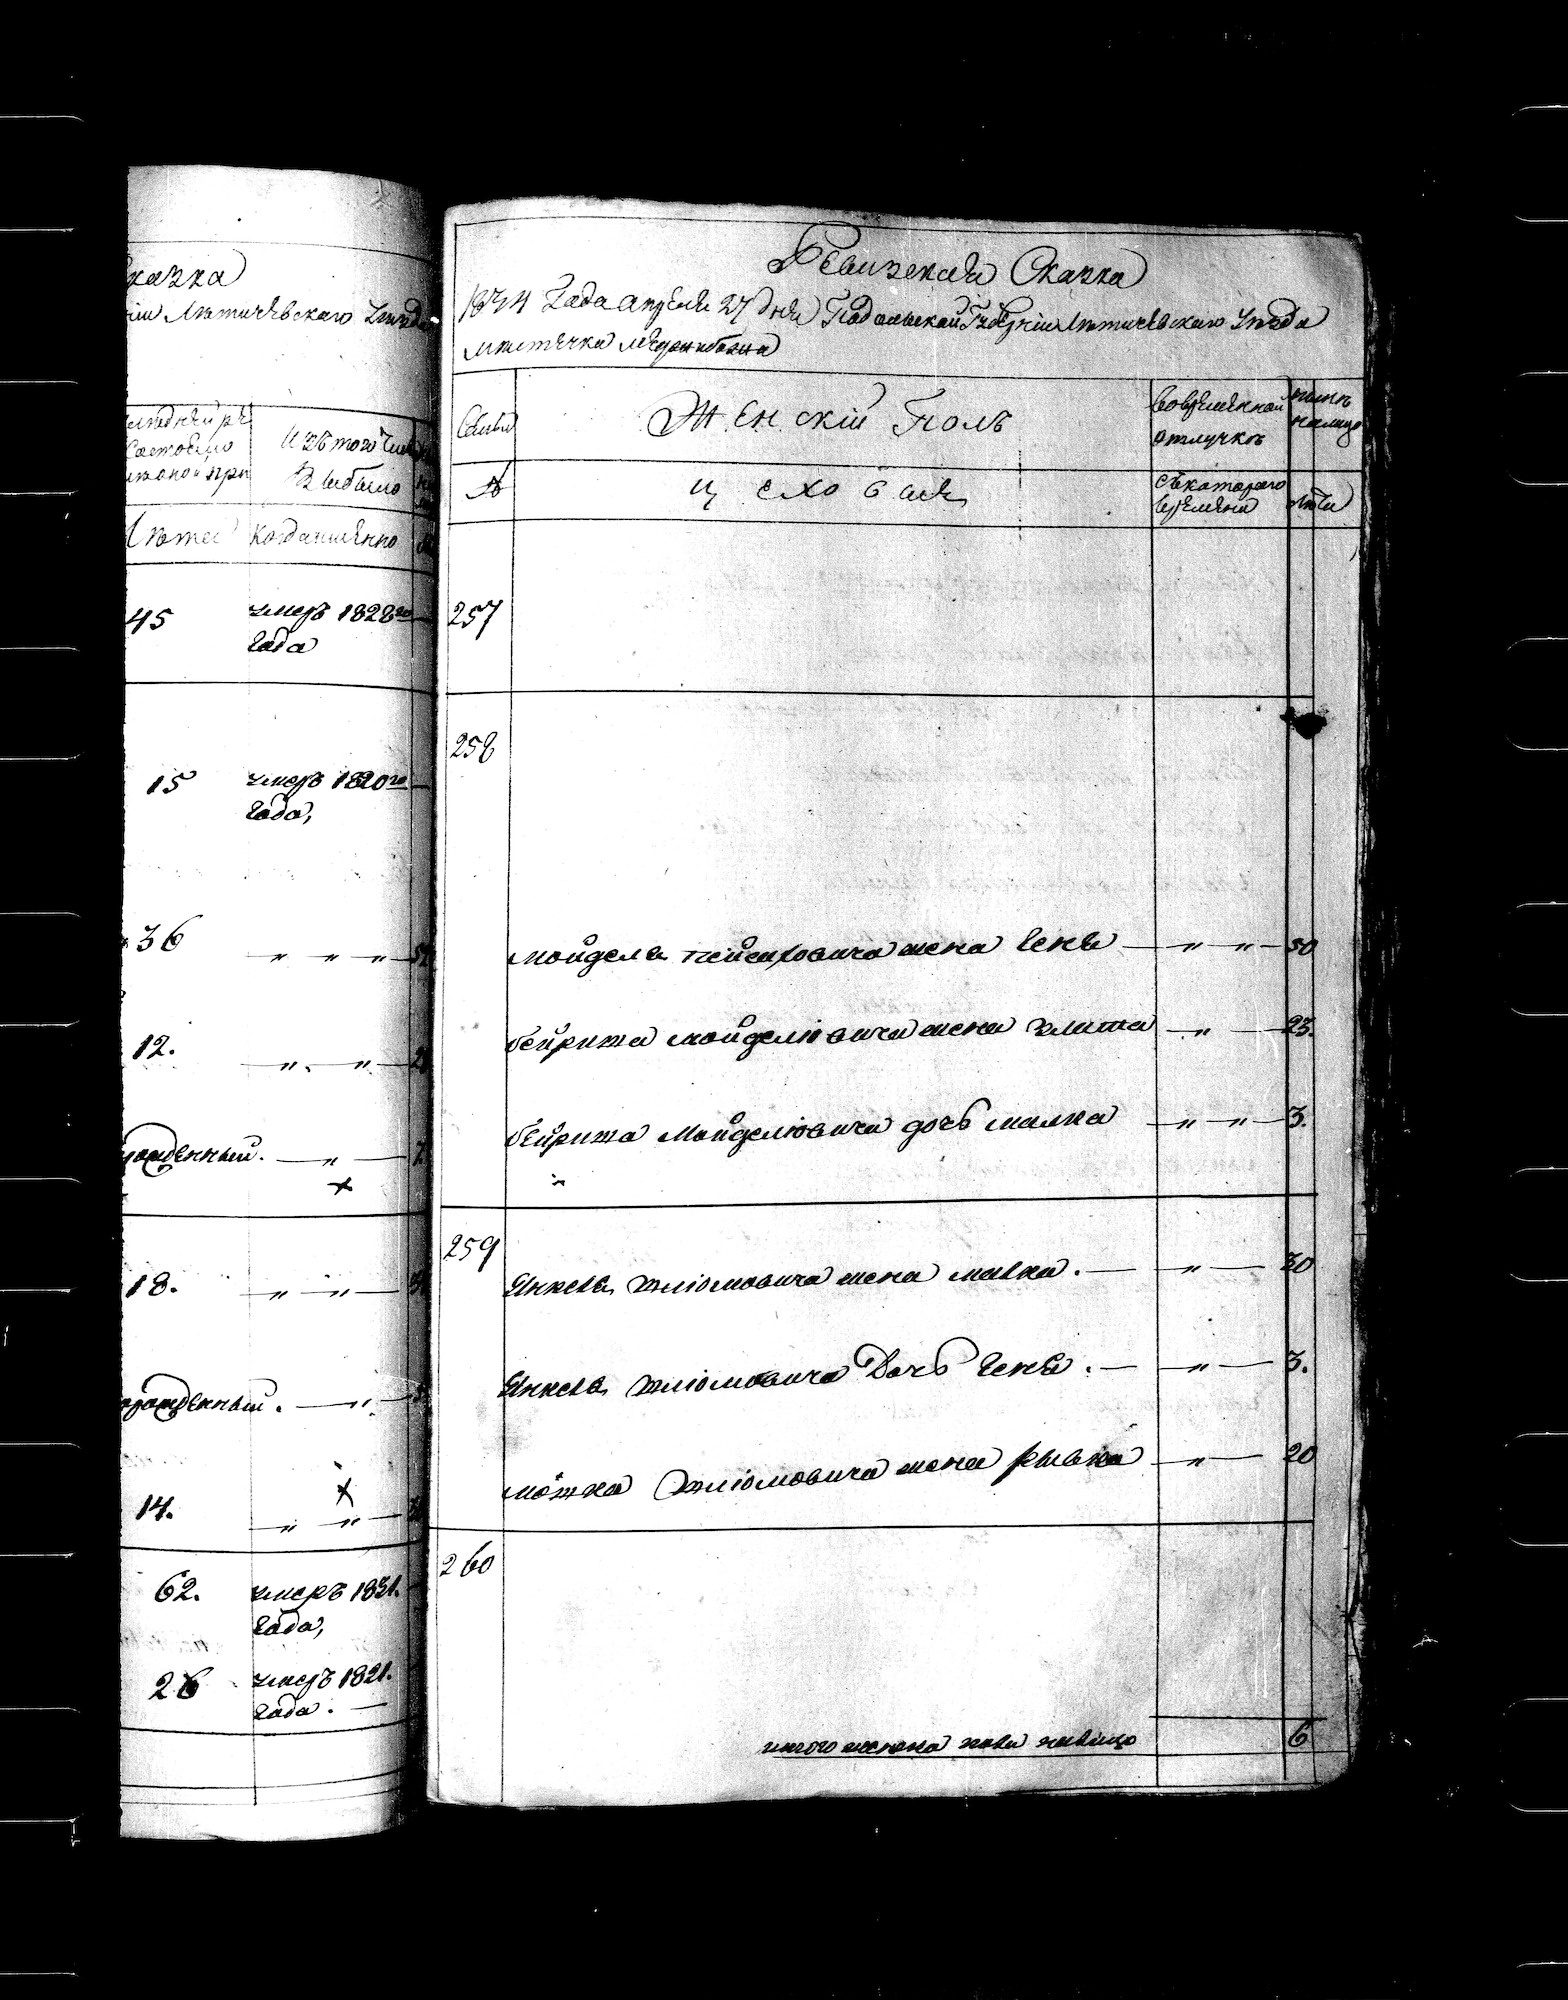 казка
ніи Летичевскаго Уезда
Изъ того числа
Выбыло
Лета
Когда именно
45
умеръ 1828го
Года
15
умеръ 1820го
Года,
36
" " "
12.
" "
рожденный. — " —
18.
" "
рожденный. — " —
14.
" "
62.
умеръ 1831.
Года,
26
умеръ 1821.
Года. —
Ревизская Сказка
1834 Года апреля 27 дня Подольской Губерніи Летичевскаго Уезда
местечка Меджибожа
Семьи
Женскій Полъ
Во временной
отлучке
ныне
налицо
№
Съ котораго
времени
Лета
257
258
Мойдель Пейсиховича жена Геня — " — " — 50
Бейриша Мойделіовича жена Злата — " — 23.
Бейриша Мойделіовича дочь Малка — " — " — 3.
259
Янкель Шліомовича жена Малка. — " — 30
Янкель Шліомовича Дочь Геня. — " — 3.
Мошка Шліомовича жена Рывка — " — 20
260
итого женска пола налицо 6